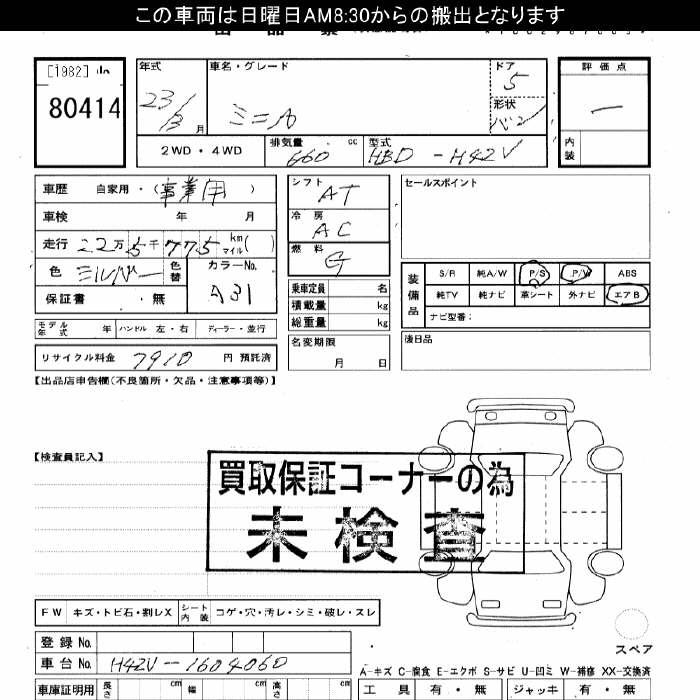 この車両は日曜日AM8:30からの搬出となります
[1982]
80414
年式 車名・グレード ドア 評価点
23/3月 ミニカ 5
形状 バン
2WD・4WD 排気量 660 cc 型式 HBD-H42V 内装
車歴 自家用・(事業用)
車検 年 月
走行 22万5千775 km マイル( )
色 シルバー 色替 カラーNo. A31
保証書 ・無
シフト AT
冷房 AC
燃料 G
乗車定員 名
積載量 kg
総重量 kg
セールスポイント
装備品 S/R 純A/W P/S P/W ABS
純TV 純ナビ 革シート 外ナビ エアB
ナビ型番:
モデル年式 年 ハンドル 左・右 ディーラー・並行
名変期限 月 日
後日品
リサイクル料金 7910 円 預託済
【出品店申告欄(不良箇所・欠品・注意事項等)】
【検査員記入】
買取保証コーナーの為
未検査
FW キズ・トビ石・割レX シート内装 コゲ・穴・汚レ・シミ・破レ・スレ
登録No.
車台No. H42V-1604060
スペア
A-キズ C-腐食 E-エクボ S-サビ U-凹ミ W-補修 XX-交換済
車庫証明用 長さ cm 幅 cm 高さ cm 工具 有・無 ジャッキ 有・無